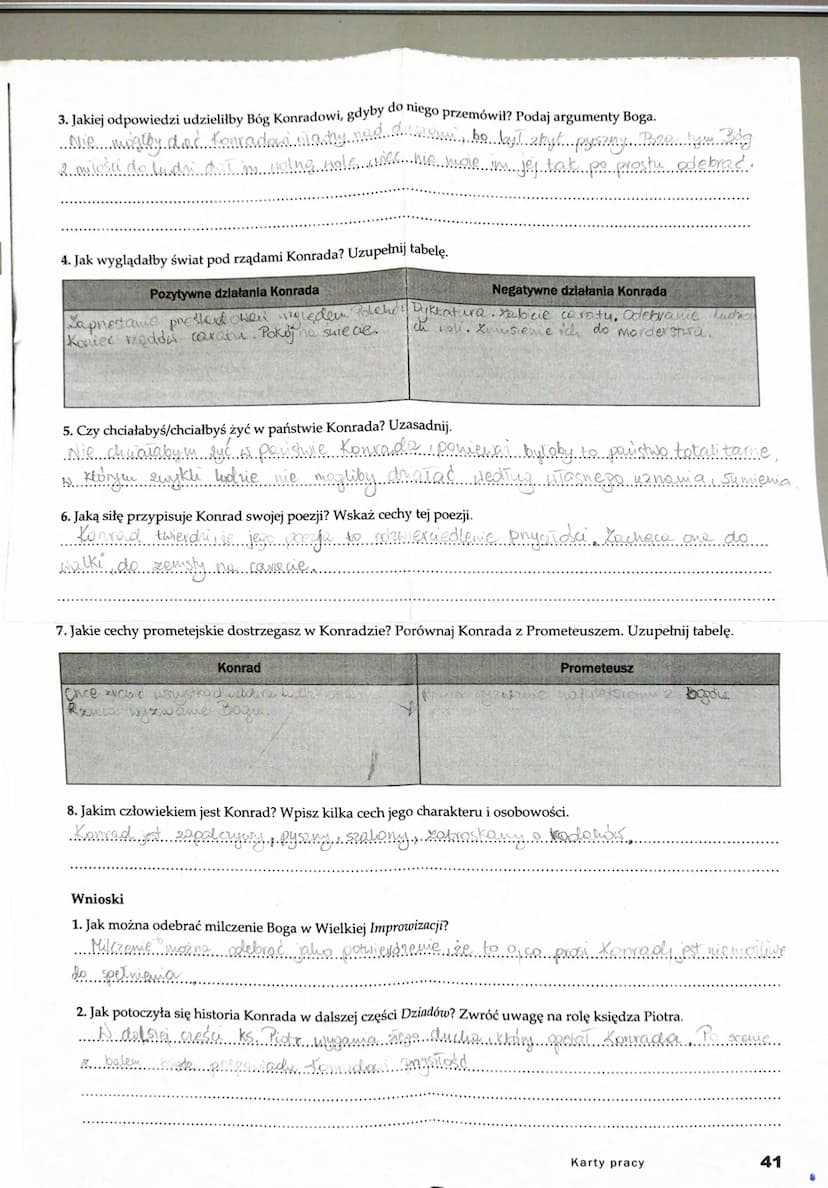 3. Jakiej odpowiedzi udzieliłby Bóg Konradowi, gdyby do niego przemówił? Podaj argumenty Boga.
Nie mógłby dać Konradowi władzy nad duszami, bo był zbyt pyszny. Poza tym Bóg
z miłości do ludzi dał im wolną wolę, więc nie może im jej tak po prostu odebrać.
4. Jak wyglądałby świat pod rządami Konrada? Uzupełnij tabelę.
Pozytywne działania Konrada
Negatywne działania Konrada
Zaprzestanie prześladowań względem
Koniec rządów caratu. Pokój na świecie.
Dyktatura. zabicie caratu. Odebranie
ich woli. Zmuszenie ich do morderstwa.
5. Czy chciałabyś/chciałbyś żyć w państwie Konrada? Uzasadnij.
Nie chciałabym żyć w państwie Konrada, ponieważ byłoby to państwo totalitarne,
w którym zwykli ludzie nie mogliby działać według własnego uznania, sumienia
6. Jaką siłę przypisuje Konrad swojej poezji? Wskaż cechy tej poezji.
Konrad twierdzi, że jego poezja to odzwierciedlenie przyszłości. Zachęca ona do
walki, do zemsty na caracie.
7. Jakie cechy prometejskie dostrzegasz w Konradzie? Porównaj Konrada z Prometeuszem. Uzupełnij tabelę.
Konrad
Prometeusz
Chce
Rzuca wyzwanie Bogu.
wyzwanie z bogów
8. Jakim człowiekiem jest Konrad? Wpisz kilka cech jego charakteru i osobowości.
Konrad jest zapalczywy, pyszny, szalony, zatroskany o rodaków.
Wnioski
1. Jak można odebrać milczenie Boga w Wielkiej Improwizacji?
Milczenie można odebrać jako potwierdzenie, że to o co prosi Konrad, jest niemożliwe
do spełnienia.
2. Jak potoczyła się historia Konrada w dalszej części Dziadów? Zwróć uwagę na rolę księdza Piotra.
W dalszej części ks. Piotr wygania złego ducha, który opętał Konrada. Po scenie
z balem przepowiada Konradowi przyszłość
Karty pracy
41